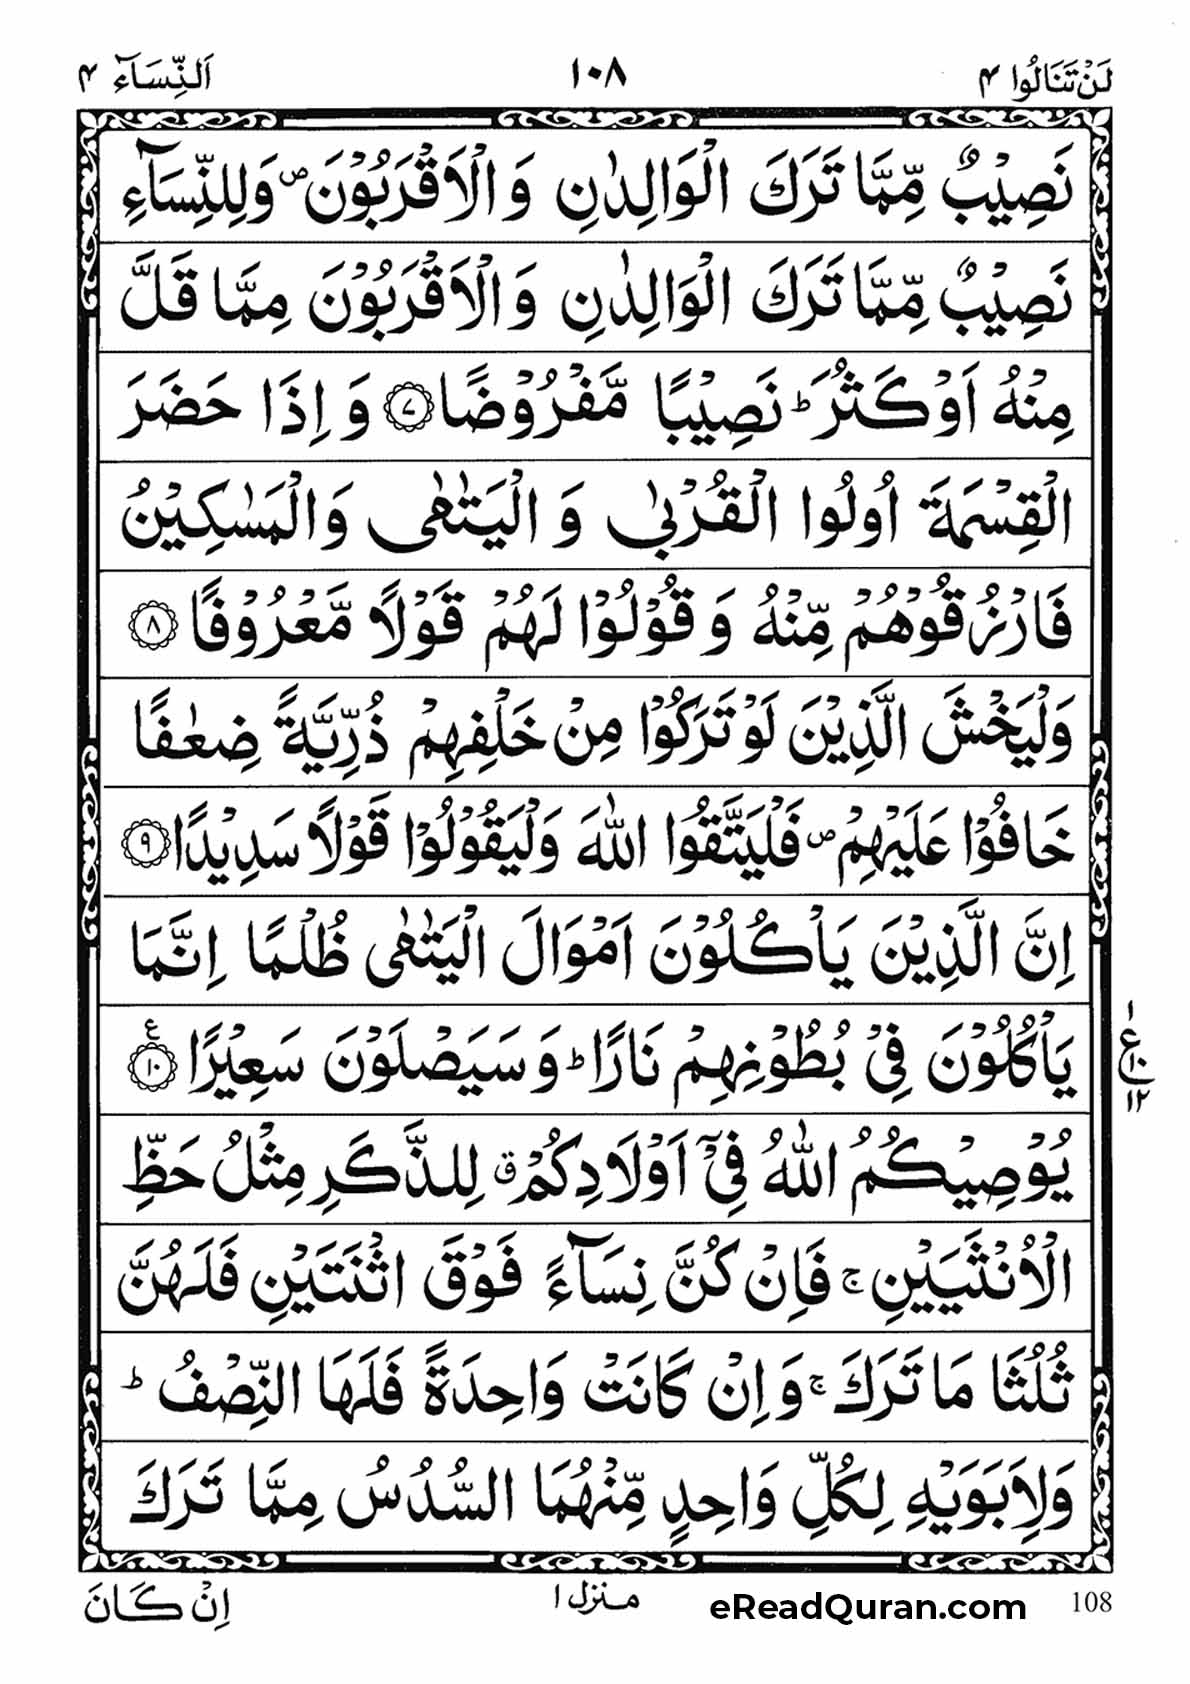 لَنْ تَنَالُوا ۴ ۱۰۸ اَلنِّسَآء ۴
نَصِيْبٌ مِّمَّا تَرَكَ الْوَالِدٰنِ وَ الْاَقْرَبُوْنَ ۪ وَلِلنِّسَآءِ
نَصِيْبٌ مِّمَّا تَرَكَ الْوَالِدٰنِ وَ الْاَقْرَبُوْنَ مِمَّا قَلَّ
مِنْهُ اَوْ كَثُرَ ؕ نَصِيْبًا مَّفْرُوْضًا ﴿۷﴾ وَ اِذَا حَضَرَ
الْقِسْمَةَ اُولُوا الْقُرْبٰى وَ الْيَتٰمٰى وَ الْمَسٰكِيْنُ
فَارْزُقُوْهُمْ مِّنْهُ وَ قُوْلُوْا لَهُمْ قَوْلًا مَّعْرُوْفًا ﴿۸﴾
وَلْيَخْشَ الَّذِيْنَ لَوْ تَرَكُوْا مِنْ خَلْفِهِمْ ذُرِّيَّةً ضِعٰفًا
خَافُوْا عَلَيْهِمْ ۪ فَلْيَتَّقُوا اللّٰهَ وَلْيَقُوْلُوْا قَوْلًا سَدِيْدًا ﴿۹﴾
اِنَّ الَّذِيْنَ يَاْكُلُوْنَ اَمْوَالَ الْيَتٰمٰى ظُلْمًا اِنَّمَا
يَاْكُلُوْنَ فِيْ بُطُوْنِهِمْ نَارًا ؕ وَ سَيَصْلَوْنَ سَعِيْرًا ﴿۱۰﴾ ع
۱
ع ۱۰
۱۲
يُوْصِيْكُمُ اللّٰهُ فِيْۤ اَوْلَادِكُمْ ۗ لِلذَّكَرِ مِثْلُ حَظِّ
الْاُنْثَيَيْنِ ۚ فَاِنْ كُنَّ نِسَآءً فَوْقَ اثْنَتَيْنِ فَلَهُنَّ
ثُلُثَا مَا تَرَكَ ۚ وَ اِنْ كَانَتْ وَاحِدَةً فَلَهَا النِّصْفُ ؕ
وَلِاَبَوَيْهِ لِكُلِّ وَاحِدٍ مِّنْهُمَا السُّدُسُ مِمَّا تَرَكَ
108 eReadQuran.com منزل ۱ اِنْ كَانَ